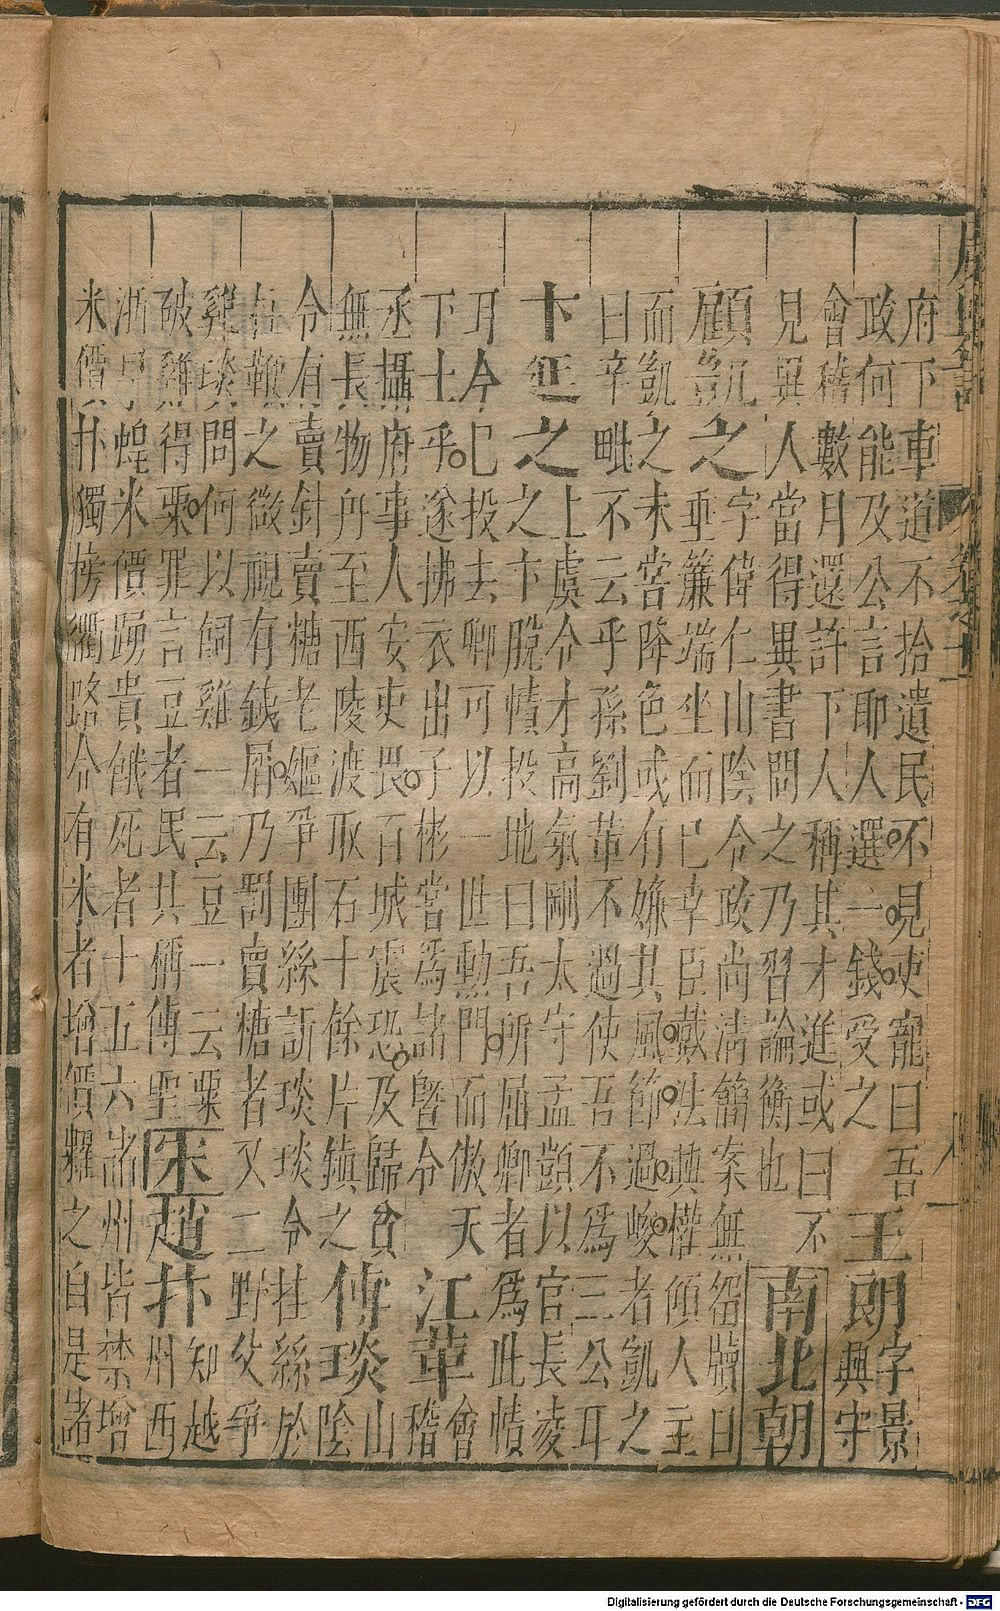 府下車道不拾遺民不見吏寵曰吾
政何能及公言耶人選一錢受之
王朗
字景
興守
會稽數月還許下人稱其才進或曰不
見異人當得異書問之乃習論衡也
南北朝
顧凱之
字偉仁山陰令政尚清簡案無留牘日
垂簾端坐而已幸臣戴法興權傾人主
而凱之未嘗降色或有嫌其風節過峻者凱之
曰辛毗不云乎孫劉輩不過使吾不為三公耳
卞延之
上虞令才高氣剛太守孟顗以官長凌
之卞脫幘投地曰吾所屈卿者為此幘
耳今已投去卿可以一世勳門而傲天
下士乎遂拂衣出子彬嘗為諸暨令
江革
會
稽
丞攝府事人安吏畏百城震恐及歸貧
無長物舟至西陵渡取石十餘片鎮之
傅琰
山
陰
令有賣針賣糖老嫗爭團絲訴琰琰令挂絲於
柱鞭之微視有鐵屑乃罰賣糖者又二野父爭
雞琰問何以飼雞一云豆一云粟
破雞得粟罪言豆者民共稱傅聖
宋
趙抃
知越
州西
浙旱蝗米價踴貴餓死者十五六諸州皆禁增
米價抃獨榜衢路令有米者增價糶之自是諸
Digitalisierung gefördert durch die Deutsche Forschungsgemeinschaft - DFG